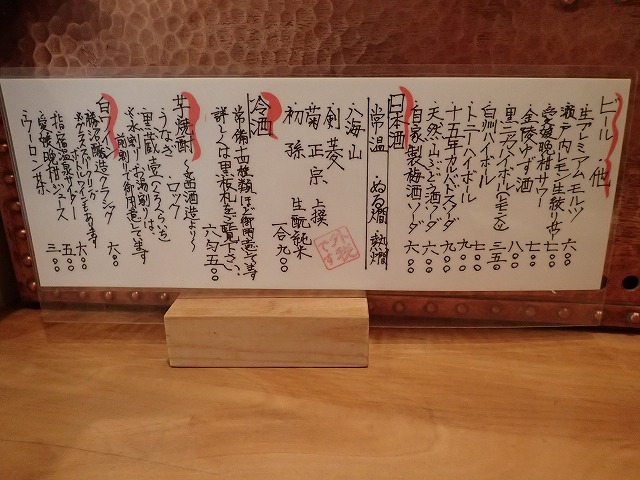 ビール・他
生プレミアムモルツ 六〇〇
瀬戸内レモン生絞りサワー 七〇〇
愛媛晩柑サワー 七〇〇
金陵ゆず酒 八〇〇
黒ニッカハイボール(レモン入り) 三五〇
白州ハイボール 七〇〇
トニーハイボール 九〇〇
十五年カルバドスソーダ 九〇〇
天然山ぶどう酒ソーダ 六〇〇
自家製梅酒ソーダ 六〇〇
日本酒
常温 ぬる燗 熱燗
八海山
剣菱
菊正宗 上撰
初孫 生酛純米
一合九〇〇
冷酒
常備十四種類ほど御用意してます
詳しくは黒板札をご覧下さい。
六勺五〇〇
芋焼酎 〜各酒造より〜
うなぎ ロック
黒蔵壹(くろくらいち)
※水割り・お湯割りは、
前割りで御用意して居ます
白ワイン
勝沼醸造アラシング 六〇〇
※グラススパークリングもあります 六〇〇
指宿温泉サイダー 五〇〇
愛媛晩柑ジュース
ウーロン茶 三〇〇